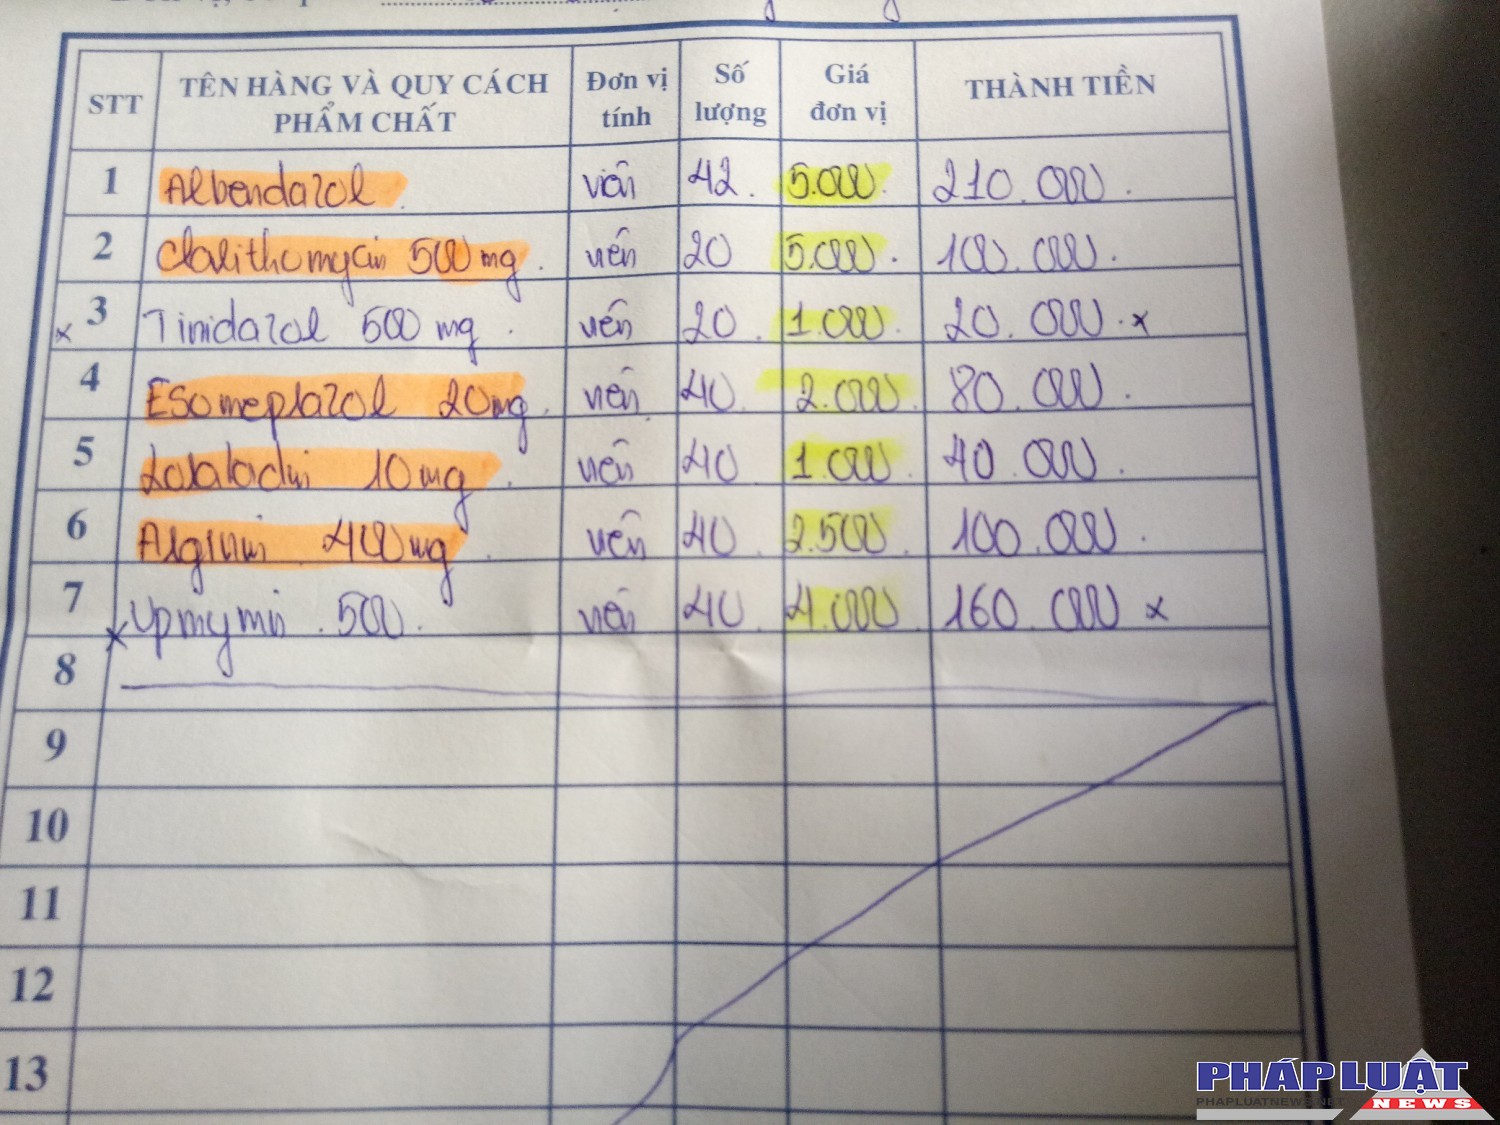 STT TÊN HÀNG VÀ QUY CÁCH PHẨM CHẤT Đơn vị tính Số lượng Giá đơn vị THÀNH TIỀN
1 Albendazol viên 42 5.000 210.000
2 Clalithomycin 500mg viên 20 5.000 100.000
x 3 Tinidazol 500mg viên 20 1.000 20.000 x
4 Esomeplazol 20mg viên 40 2.000 80.000
5 10mg viên 40 1.000 40.000
6 400mg viên 40 2.500 100.000
7 x Upmymin 500 viên 40 4.000 160.000 x
8
9
10
11
12
13
PHÁP LUẬT
PHAPLUATNEWS.NET
NEWS